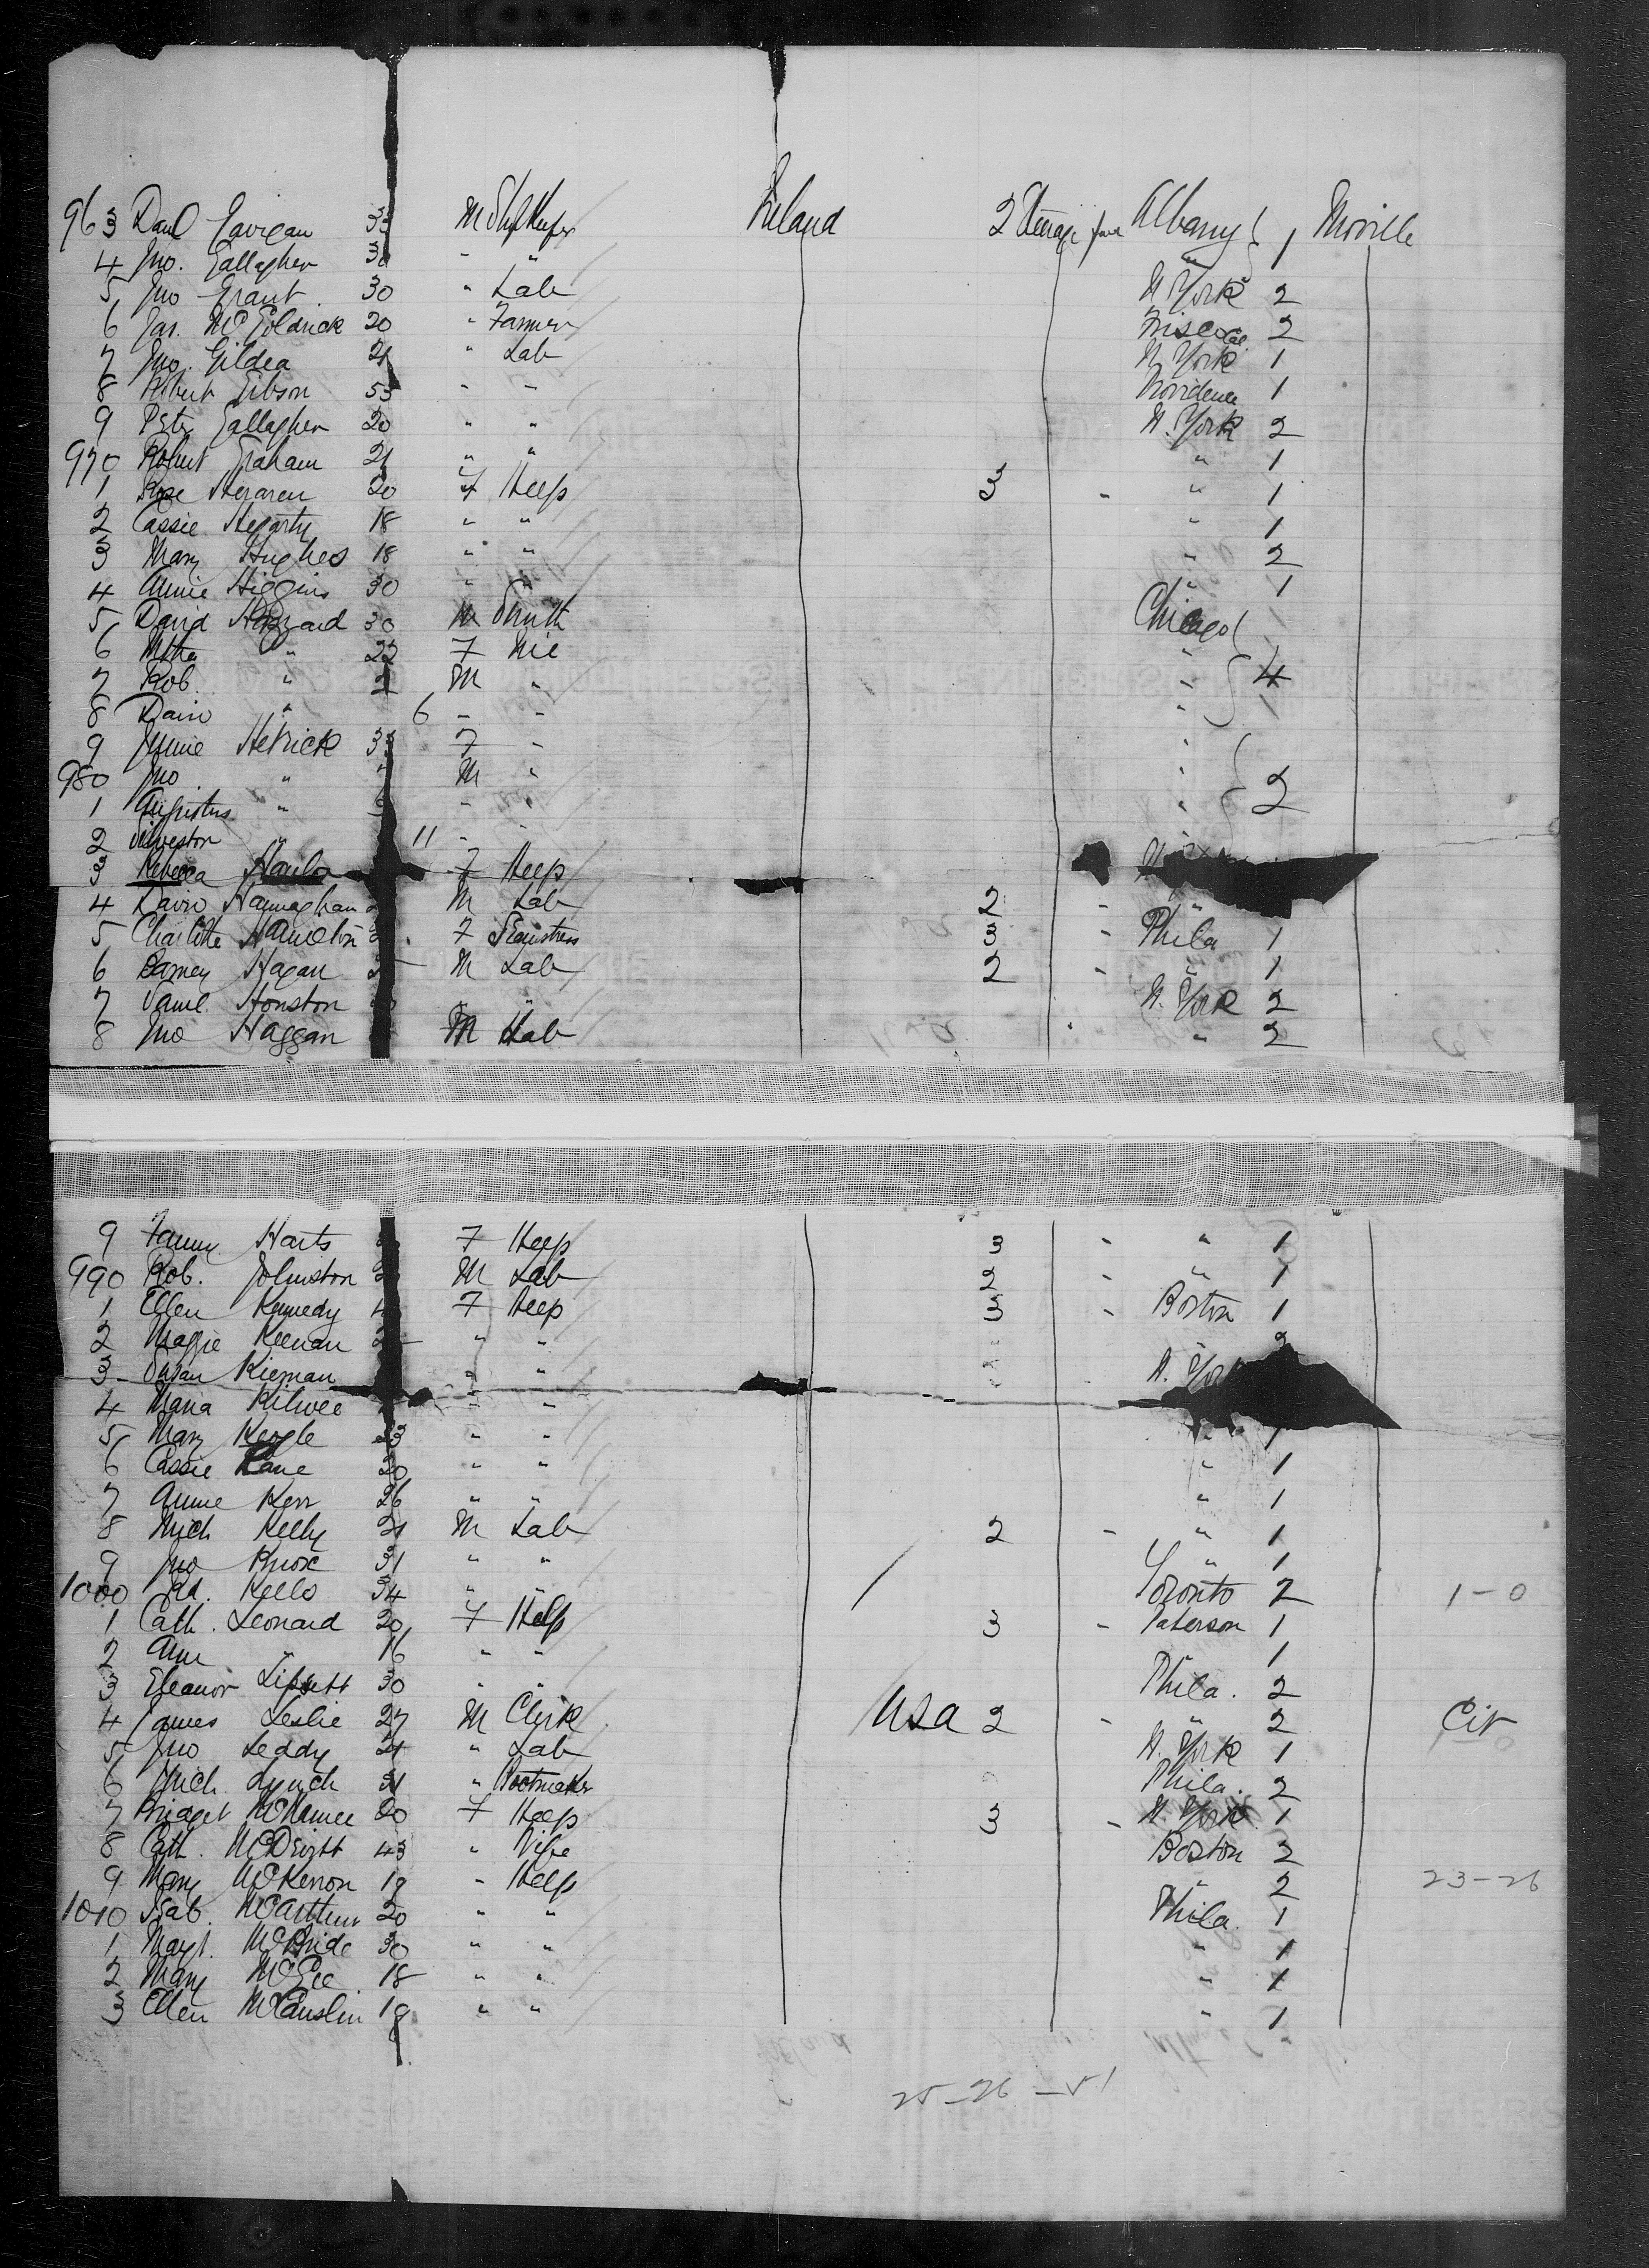 963 Danl Gavigan 33 M Shpkeeper Ireland 2 Steerage fwd Albany 1 Moville
4 Jno. Gallagher 30 " " "
5 Jno Grant 30 " Lab N. York 2
6 Jas. McGoldrick 20 " Farmer Frisco Cal 2
7 Jno. Gildea 21 " Lab N. York 1
8 Robert Gibson 55 " " Providence 1
9 Peter Gallagher 20 " " N. York 2
970 Robert Graham 21 " " " 1
1 Rose Hegaren 20 F Heep 3 - " 1
2 Cassie Hegarty 18 " " " 1
3 Mary Hughes 18 " " " 2
4 Annie Higgins 30 " " " 1
5 David Hazzard 30 M Smith Chicago
6 Mtha " 22 F Nie "
7 Rob. " M " " 4
8 David " 6 - " "
9 Jennie Hetrick 33 F " "
980 Jno. " M " " 2
1 Augustus " " " "
2 Silveston " 11 - "
3 Rebecca F Heep N.
4 David Hannaghan M Lab 2 - "
5 Charlotte Hamelton F Semstress 3 - Phila 1
6 Barney Hagan M Lab 2 - " 1
7 Saml. Honston " " N. York 2
8 Jno Haggan M Lab " 2
9 Fanny Harts F Heep 3 - " 1
990 Rob. Johnston M Lab 2 - " 1
1 Ellen Kennedy F Heep 3 - Boston 1
2 Maggie Keenan " " 2
3 Susan Kiernan " " N. York
4 Maria Kilwee " "
5 Mary Keogle 23 " " " 1
6 Cassie Kane 20 " " " 1
7 Annie Kerr 26 " " " 1
8 Mich Kelly 21 M Lab 2 - " 1
9 Jno Knox 31 " " " 1
1000 Rd. Kells 34 " " / Toronto 2 1-0
1 Cath. Leonard 20 F Help 3 - Paterson 1
2 Ann " 16 " " " 1
3 Eleanor Lipsett 30 " " Phila. 2
4 James Leslie 27 M Clerk USA 2 - " 2 Cit
5 Jno Leddy 21 " Lab N. York 1
6 Mich Lynch 31 " Bootmaker Phila. 2
7 Bridget McNamee 20 F Heep 3 - N. York 1
8 Cath. McDevitt 43 " Wife Boston 2
9 Mary McKerron 19 " Help " 2 23-26
1010 Isab. McArthur 20 " " Phila. 1
1 Magt. McBride 30 " " " 1
2 Mary McGee 18 " " " 1
3 Ellen McCauslin 19 " " " 1
25-26-51